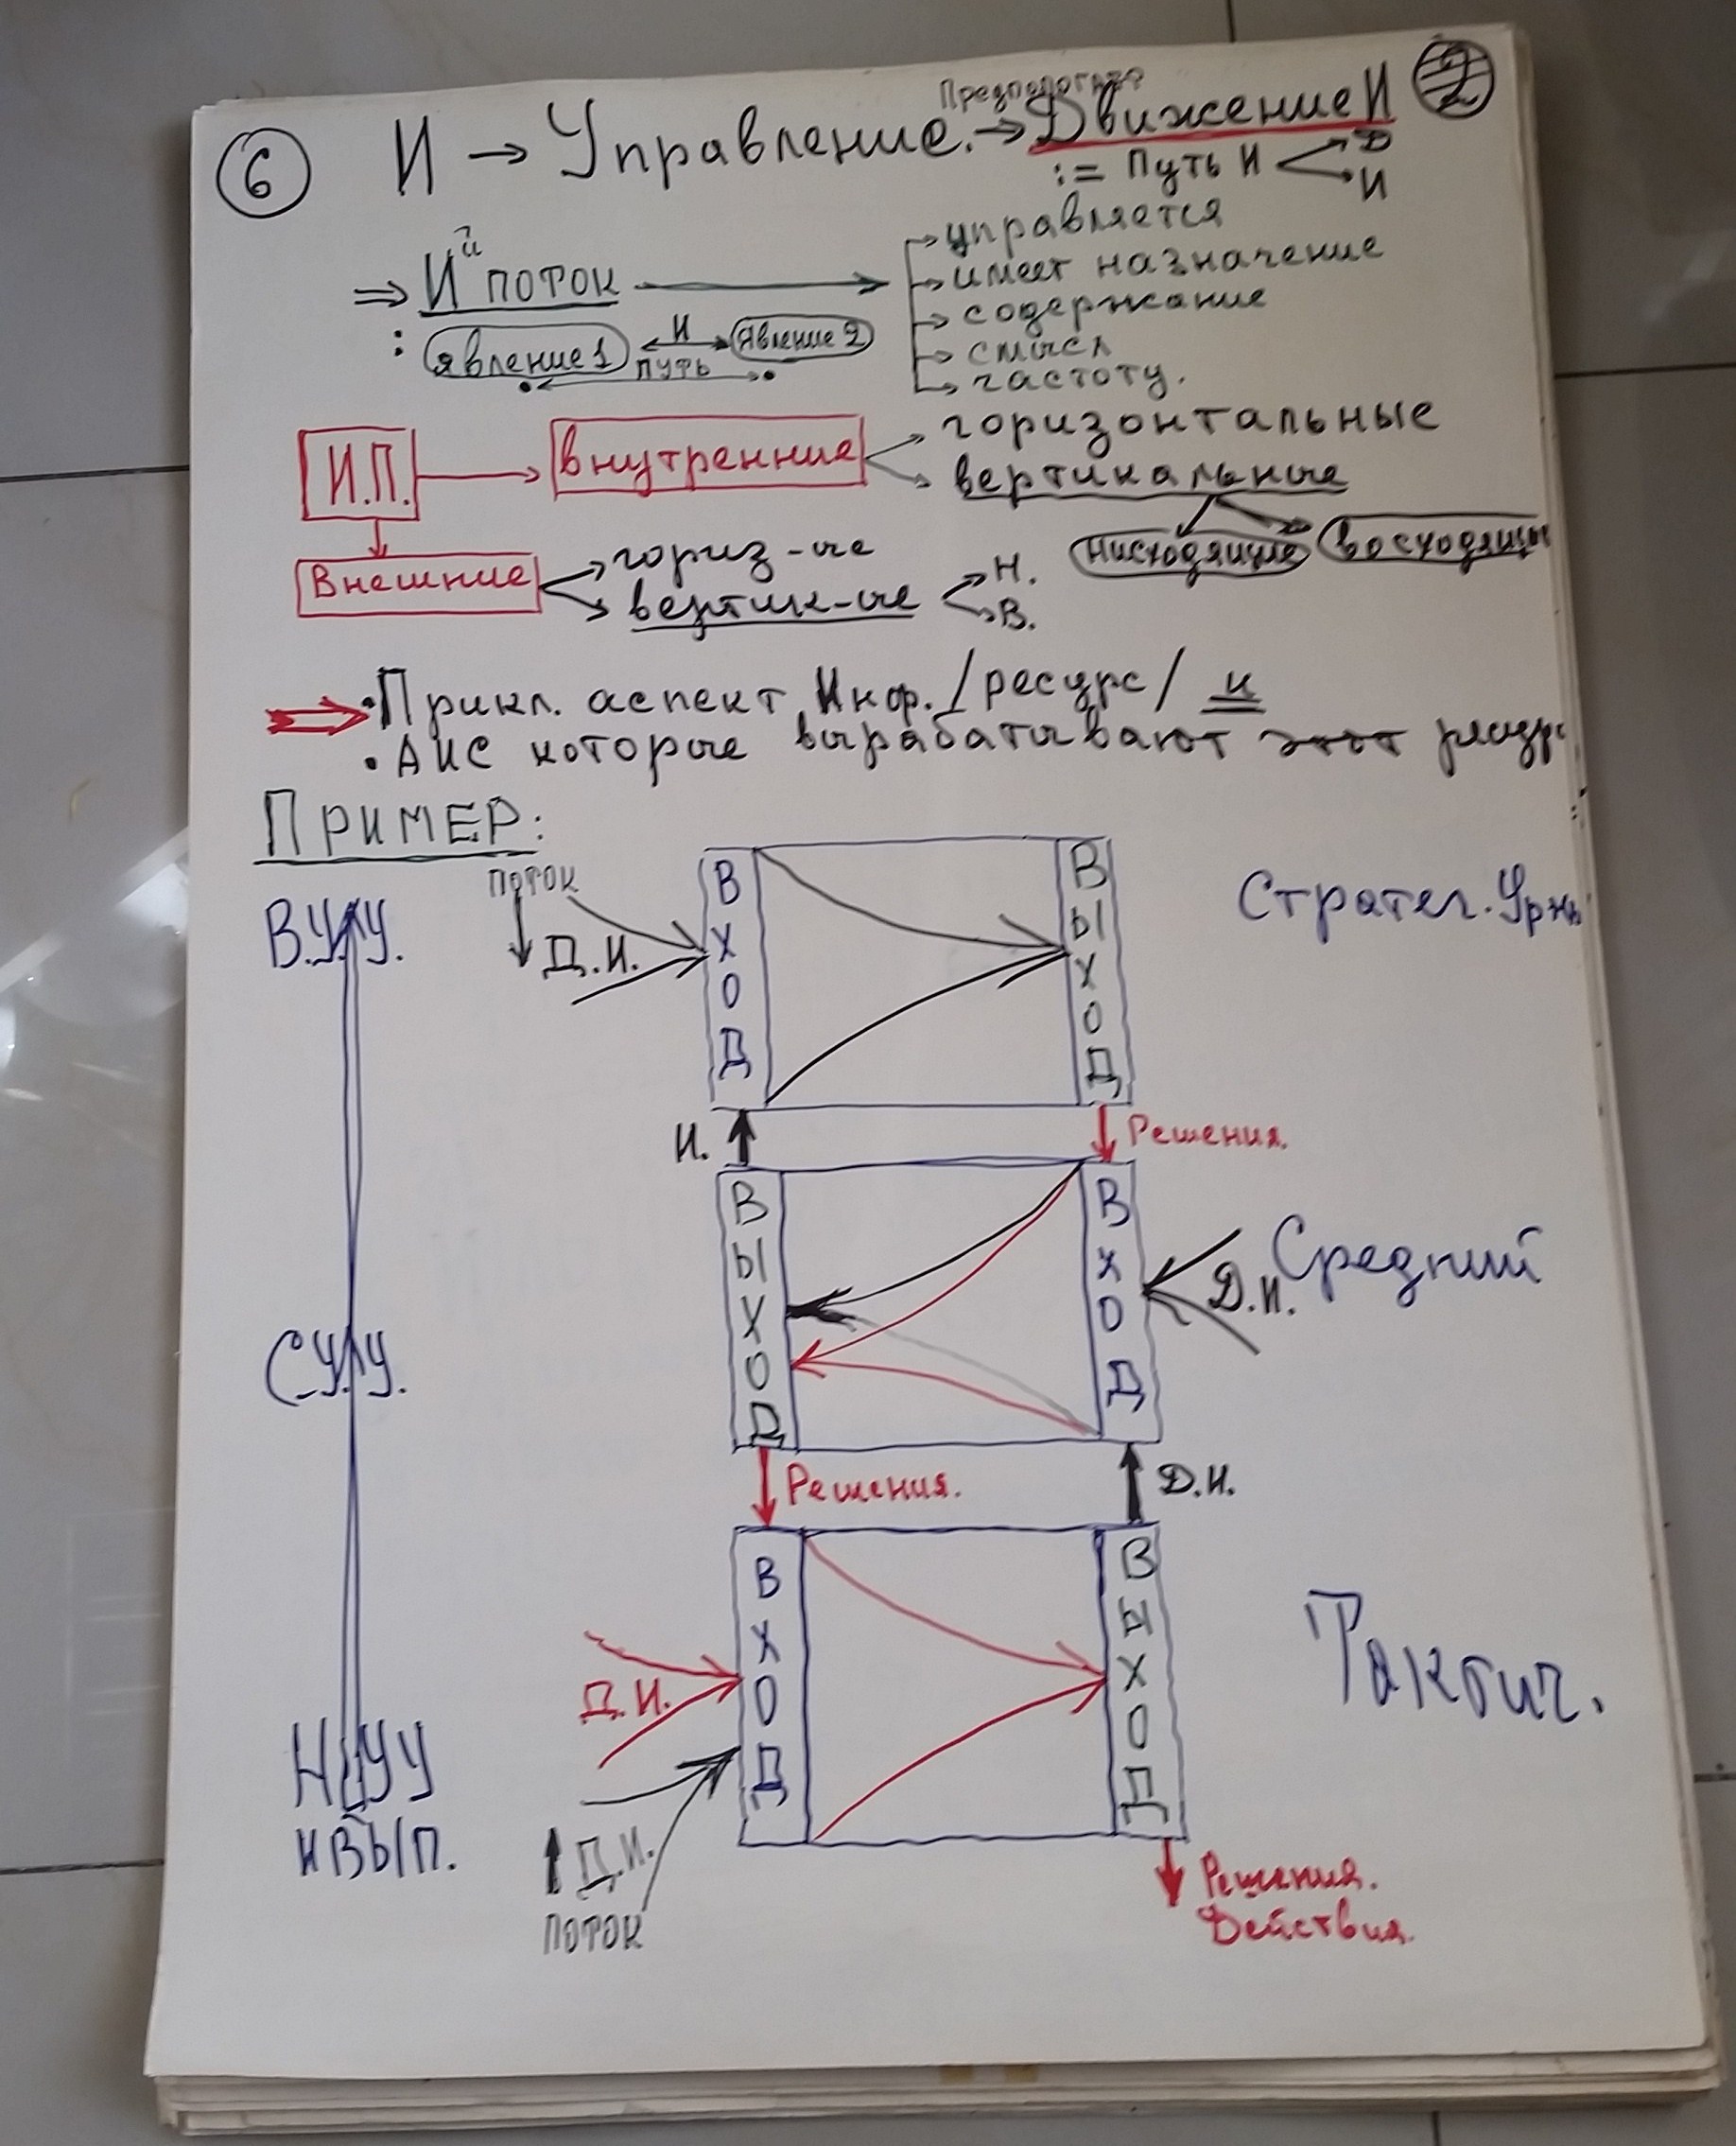 6 И → Управление. → Движение И 2
Предпологает
:= Путь И Д
И
⇒ Ий поток → управляется
имеет назначение
содержание
смысл
частоту.
: явление 1 И Явление 2
путь
И.П. внутренние горизонтальные
вертикальные
нисходящие восходящы
Внешние гориз-ые
вертик-ые Н.
В.
⇒ • Прикл. аспект Инф. /ресурс/ и
• АИС которые вырабатывают этот ресурс
ПРИМЕР:
поток
В.У.У. Д.И. ВХОД ВЫХОД Стратег. Урнь
И. Решения.
С.У.У. ВЫХОД ВХОД Д.И. Средний
Решения. Д.И.
Д.И. ВХОД ВЫХОД Тактич.
НУУ
и ВЫП.
Д.И.
поток
Решения.
Действия.